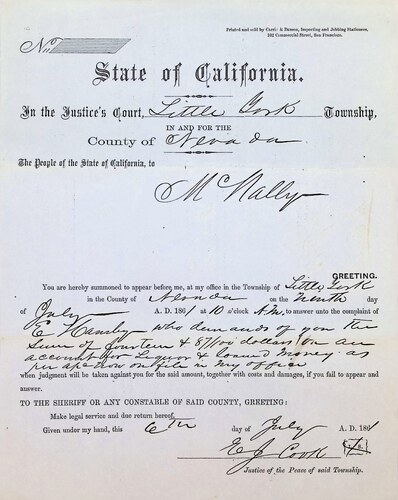 Printed and sold by Carrie & Damon, Importing and Jobbing Stationers,
192 Commercial Street, San Francisco.
No
State of California.
In the Justice's Court, Little York Township,
IN AND FOR THE
County of Nevada
The People of the State of California, to
McNally
GREETING.
You are hereby summoned to appear before me, at my office in the Township of Little York
in the County of Nevada on the Ninth day
of July A. D. 1861 at 10 o'clock A.M. to answer unto the complaint of
E Hamby who demands of you the
Sum of fourteen & 87/100 dollars on an
account for Liquor & loaned money as
per now on file in my office
when judgment will be taken against you for the said amount, together with costs and damages, if you fail to appear and
answer.
TO THE SHERIFF OR ANY CONSTABLE OF SAID COUNTY, GREETING:
Make legal service and due return hereof.
Given under my hand, this 6th day of July A. D. 1861
E J Cook
Justice of the Peace of said Township.